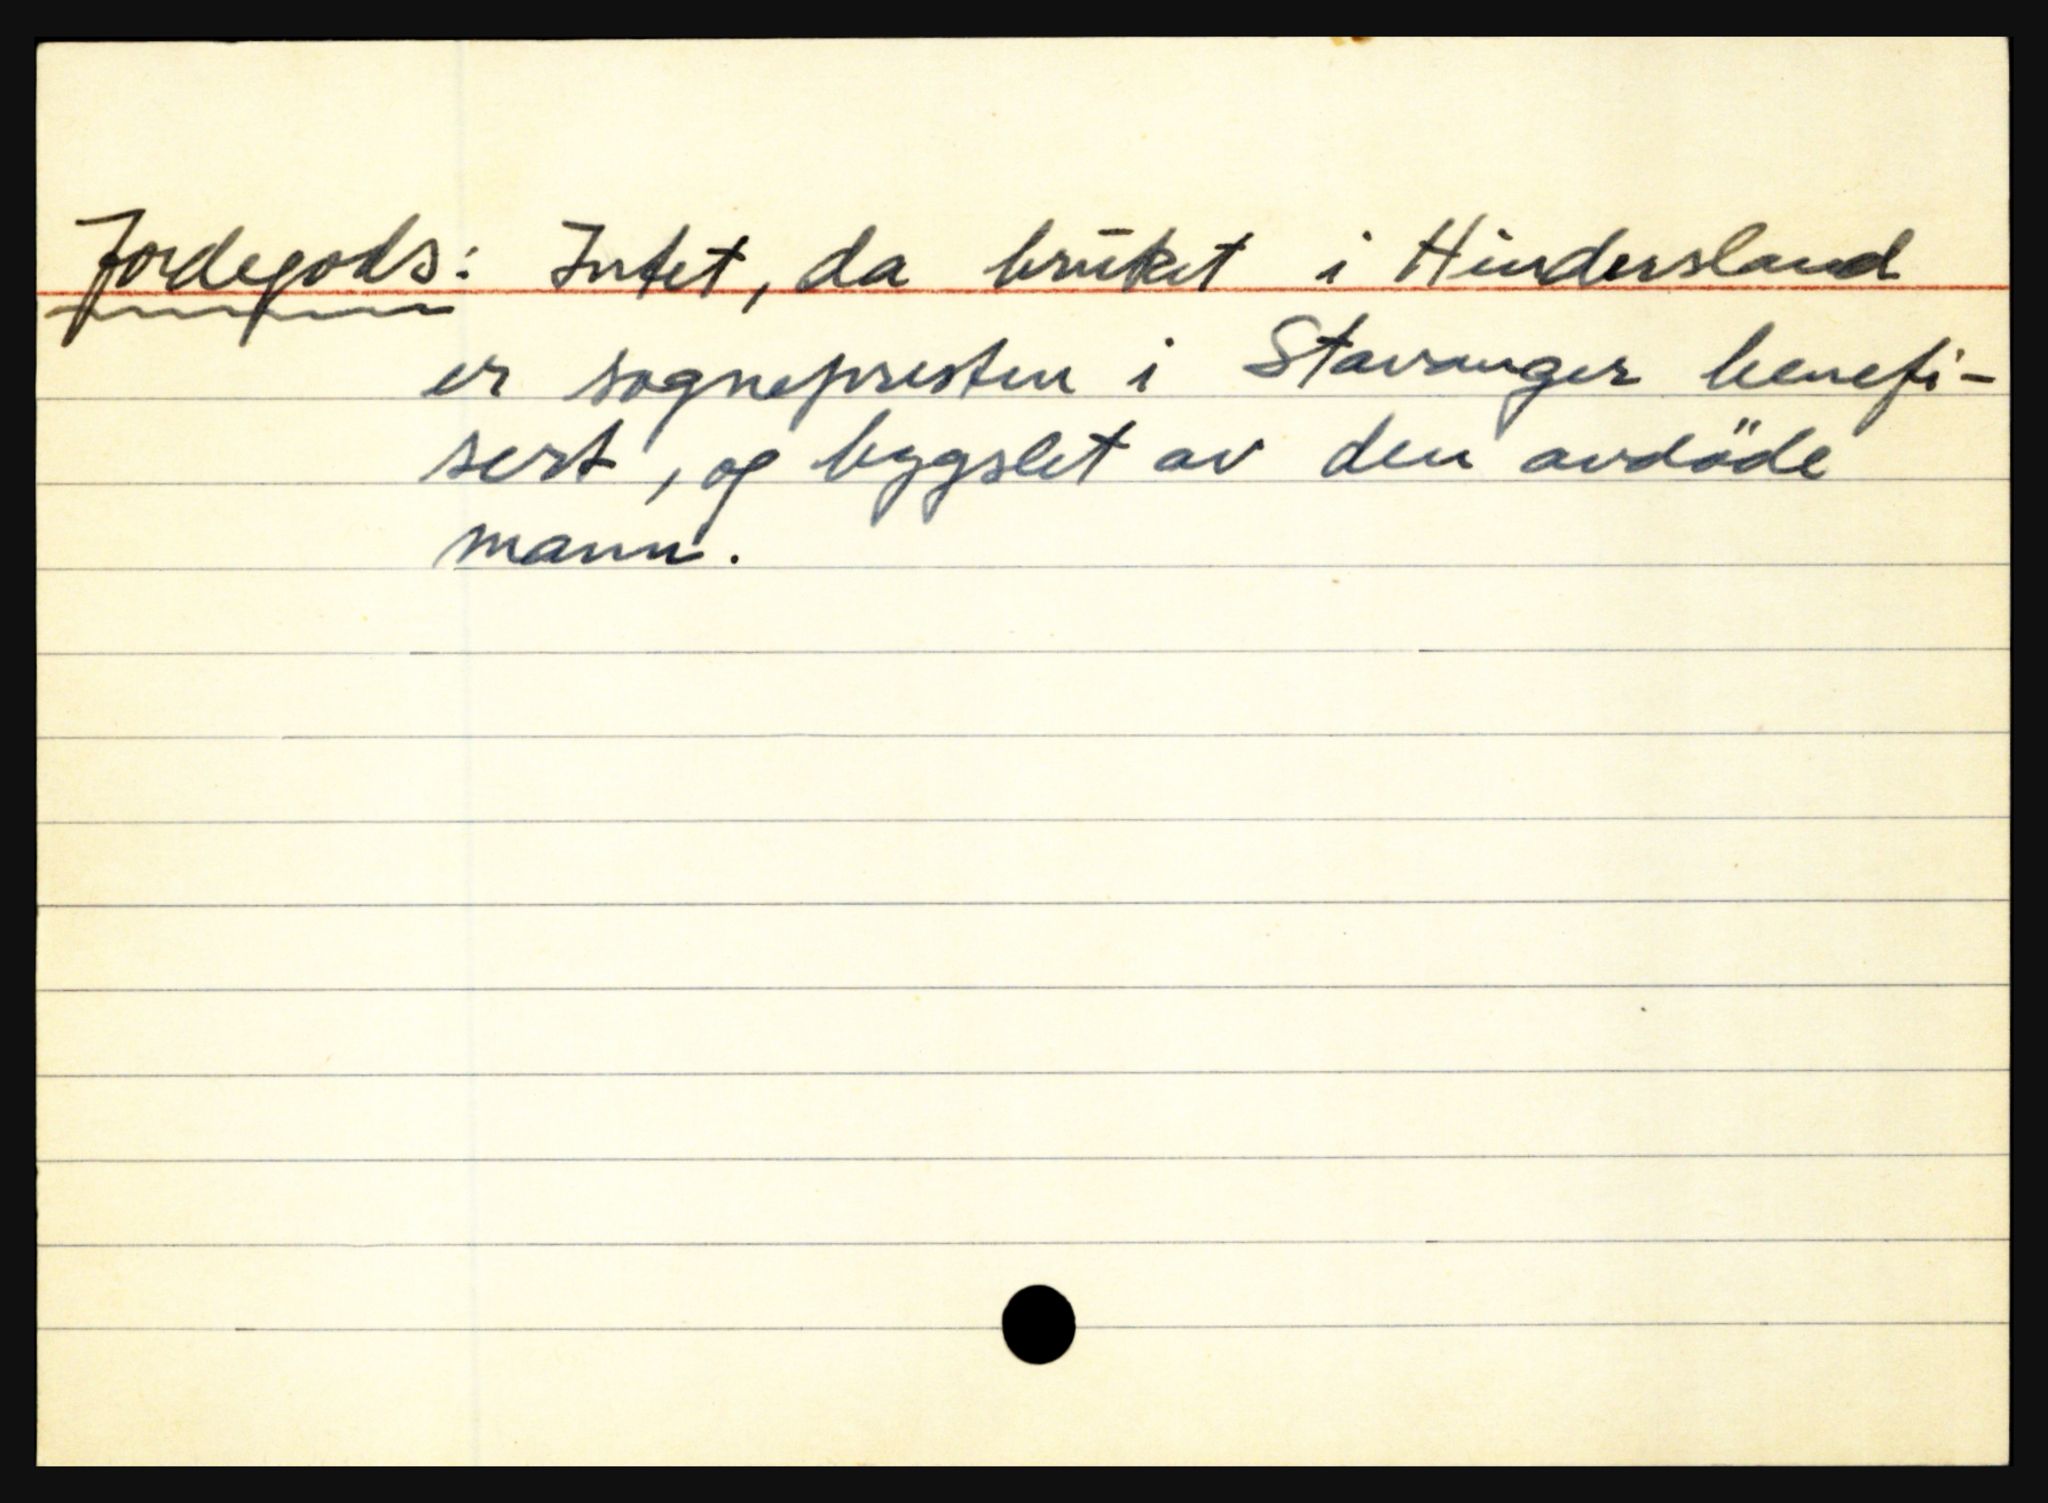 Jordegods: Intet, da brūket i Hindersland
er sognepresten i Stavanger benefi-
sert, og bygslet av den avdöde
mann.